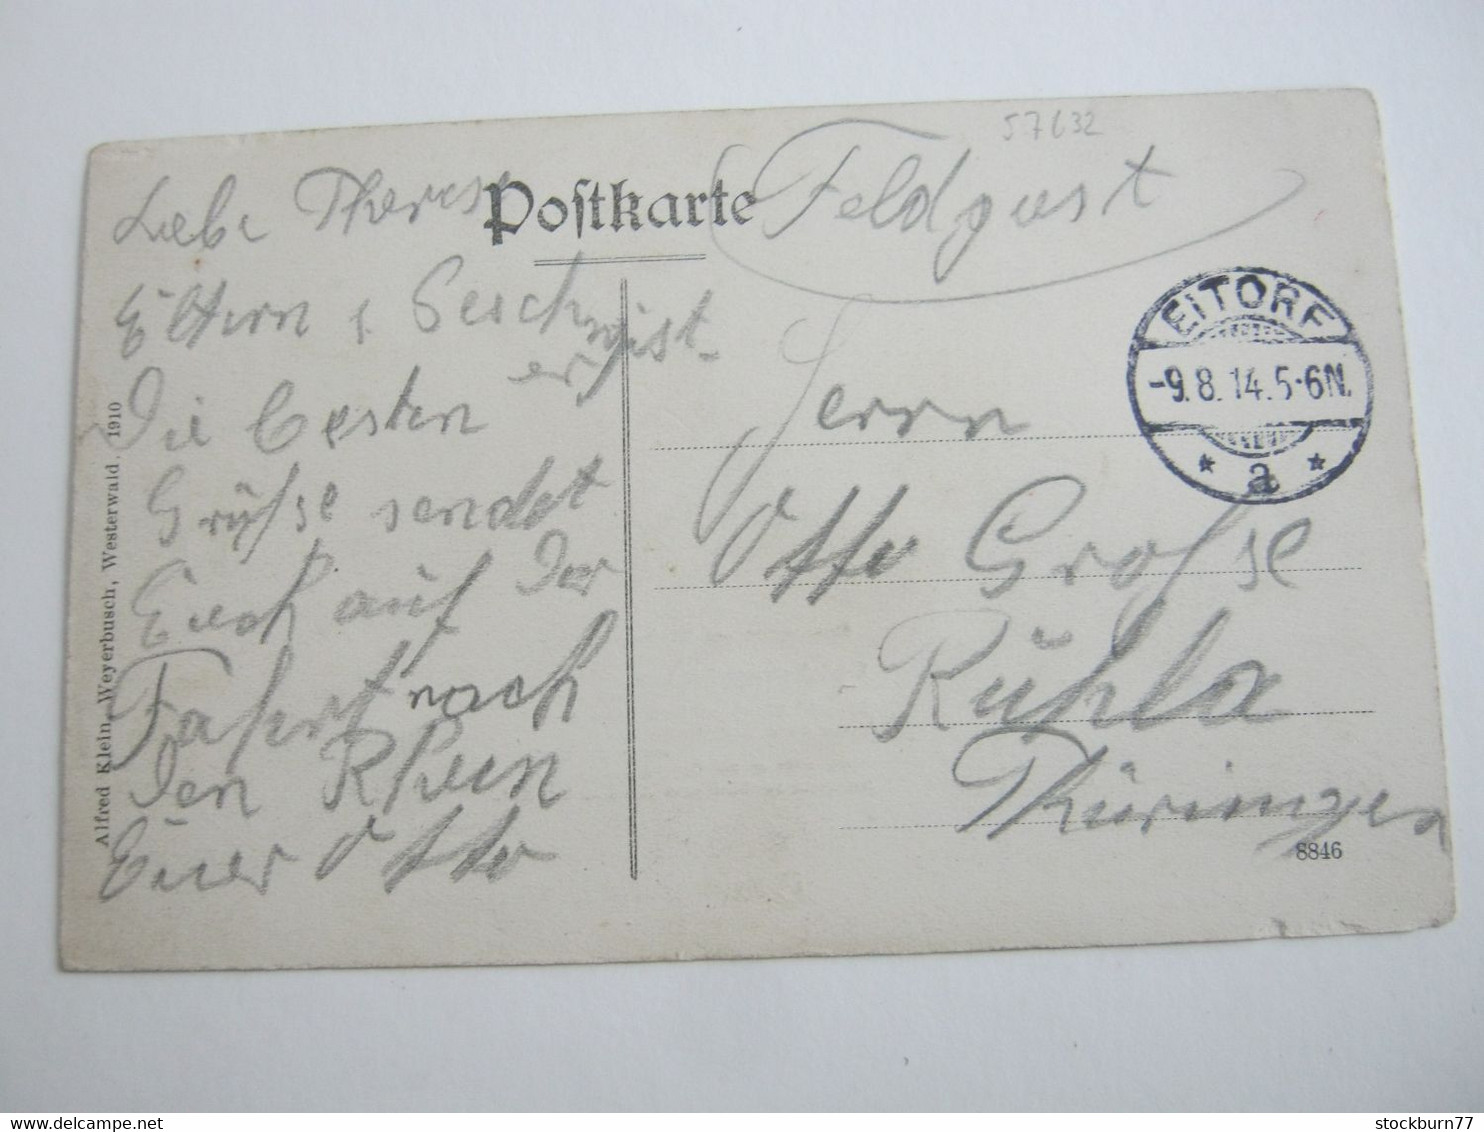 57632
Postkarte
Feldpost
EITORF
-9.8.14.5-6N.
* a *
Liebe Therese
Eltern & Geschwist-
er
Die besten
Grüßse sendet
Euch auf der
Fahrt nach
den Rhein
Euer Otto
Herrn
Otto Groß se
Ruhla
Thüringen
8846
Alfred Klein, Weyerbusch, Westerwald. 1910
stockburn77